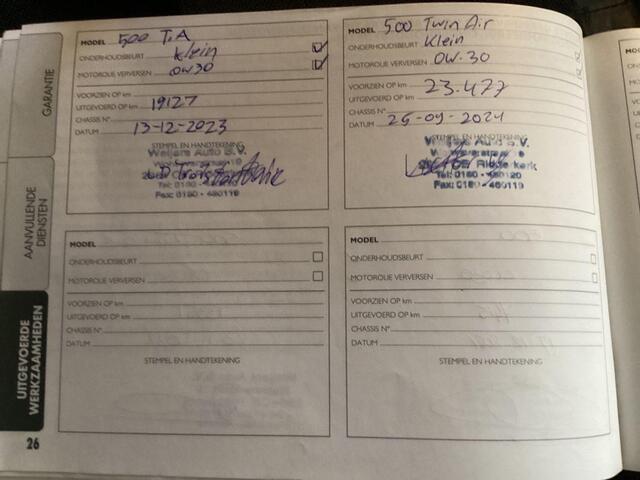 GARANTIE
AANVULLENDE
DIENSTEN
UITGEVOERDE
WERKZAAMHEDEN
26
MODEL 500 T.A
ONDERHOUDSBEURT Klein
MOTOROLIE VERVERSEN 0W30
VOORZIEN OP km
UITGEVOERD OP km 19127
CHASSIS N°
DATUM 13-12-2023
STEMPEL EN HANDTEKENING
Weijers Auto B.V.
Tel: 0180 -
Fax: 0180 - 460119
MODEL 500 Twin Air
ONDERHOUDSBEURT Klein
MOTOROLIE VERVERSEN 0W-30
VOORZIEN OP km
UITGEVOERD OP km 23.477
CHASSIS N°
DATUM 25-09-2024
STEMPEL EN HANDTEKENING
Weijers Auto B.V.
Tel: 0180 - 460120
Fax: 0180 - 460119
MODEL
ONDERHOUDSBEURT
MOTOROLIE VERVERSEN
VOORZIEN OP km
UITGEVOERD OP km
CHASSIS N°
DATUM
STEMPEL EN HANDTEKENING
MODEL
ONDERHOUDSBEURT
MOTOROLIE VERVERSEN
VOORZIEN OP km
UITGEVOERD OP km
CHASSIS N°
DATUM
STEMPEL EN HANDTEKENING